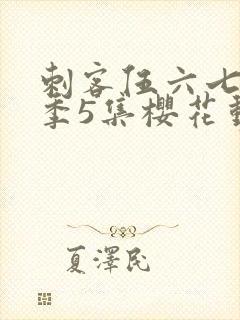 刺客伍六七
季5集樱花
夏澤民